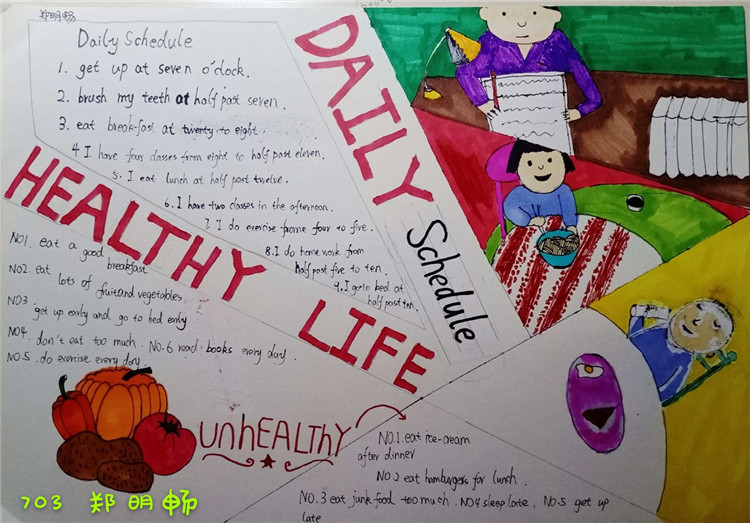 郑明畅
Daily Schedule
1. get up at seven o'clock.
2. brush my teeth at half past seven.
3. eat break-fast at twenty to eight.
4 I have four classes from eight to half past eleven.
5. I eat lunch at half past twelve.
6. I have two classes in the afternoon.
7. I do exercise frame four to five.
8. I do home work from
half past five to ten.
9. I go to bed at
half past ten.
DAILY
Schedule
HEALTHY LIFE
NO1. eat a good
breakfast
NO2. eat
lots of
fruit and vegetables
NO3.
get up early and go to bed early
NO4. don't eat too much. NO.6 read. books every day.
NO.5. do exercise every day
unhEALTHY
NO.1. eat ice-cream
after dinner
NO.2 eat hamburgers for lunch.
NO.3 eat junk food too much. NO4 sleep late. NO.5 get up
late
703 郑明畅